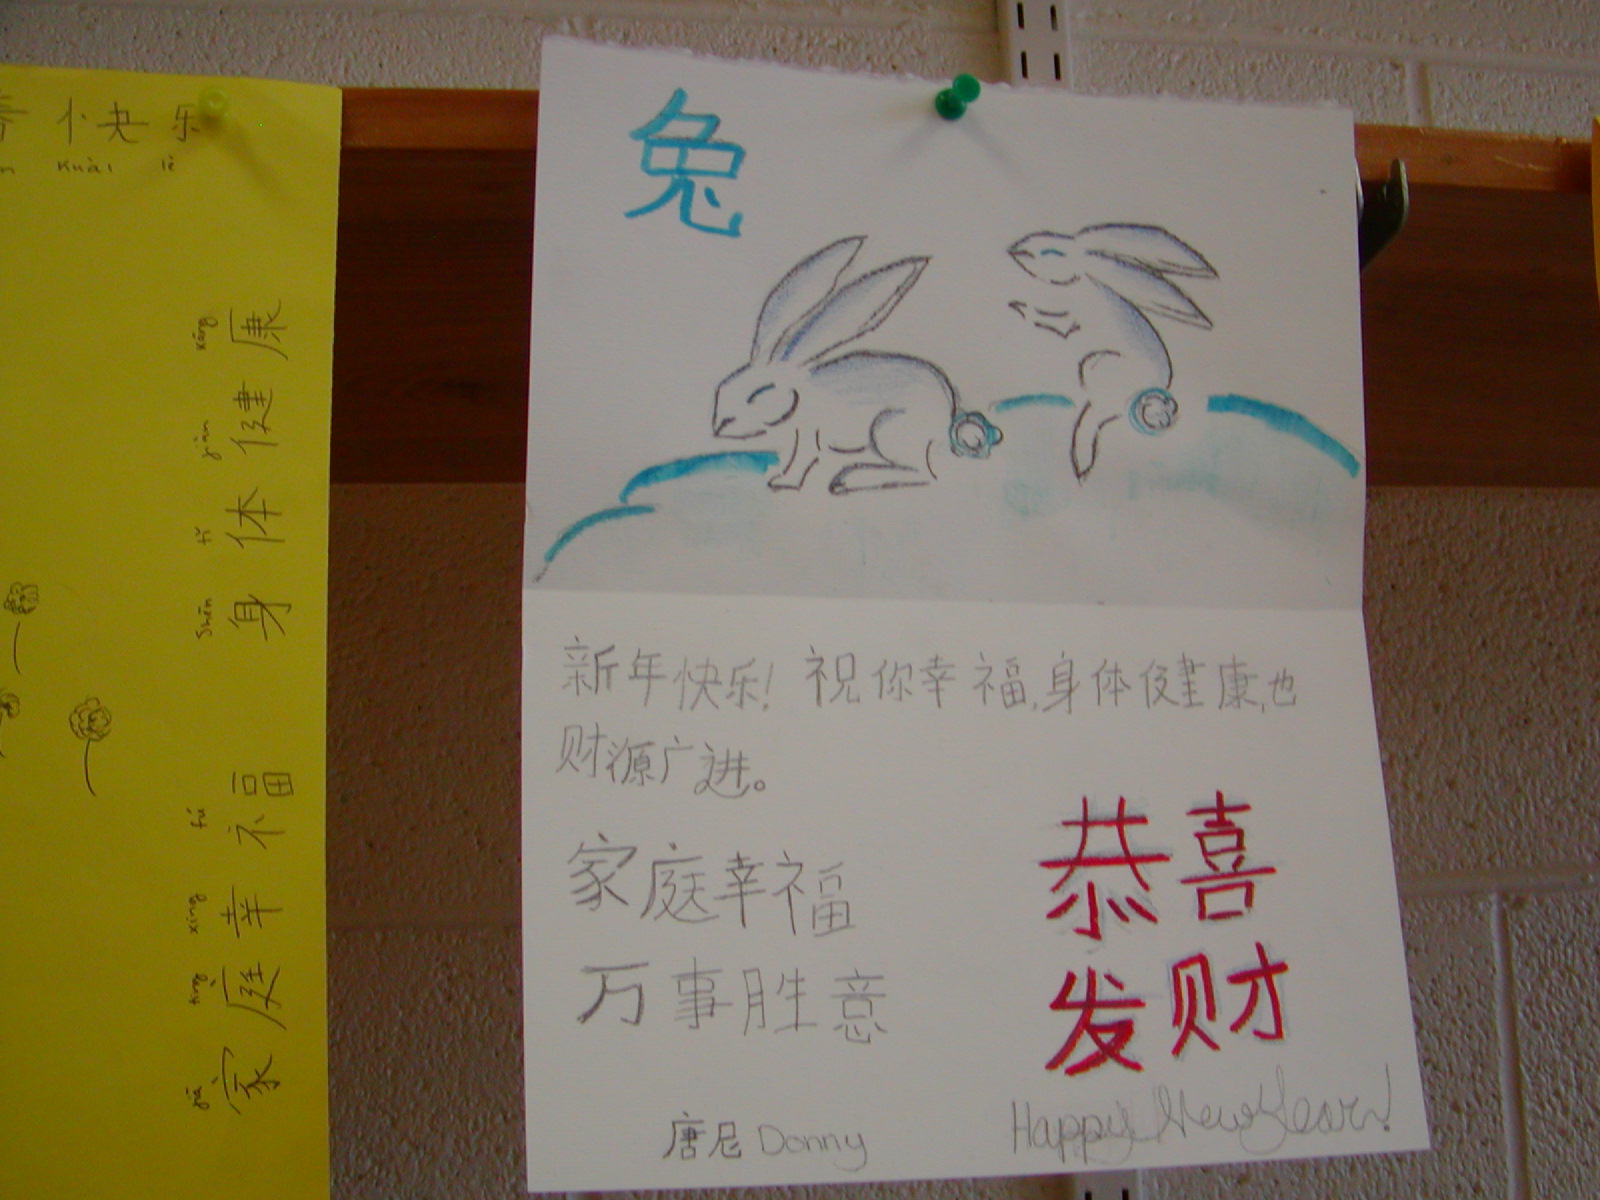 快乐
kuài lè
shēn tǐ jiàn kāng
身体健康
jiā tíng xìng fú
家庭幸福
兔
新年快乐! 祝你幸福,身体健康,也
财源广进。
家庭幸福
万事胜意
恭喜
发财
唐尼 Donny
Happy New Year!